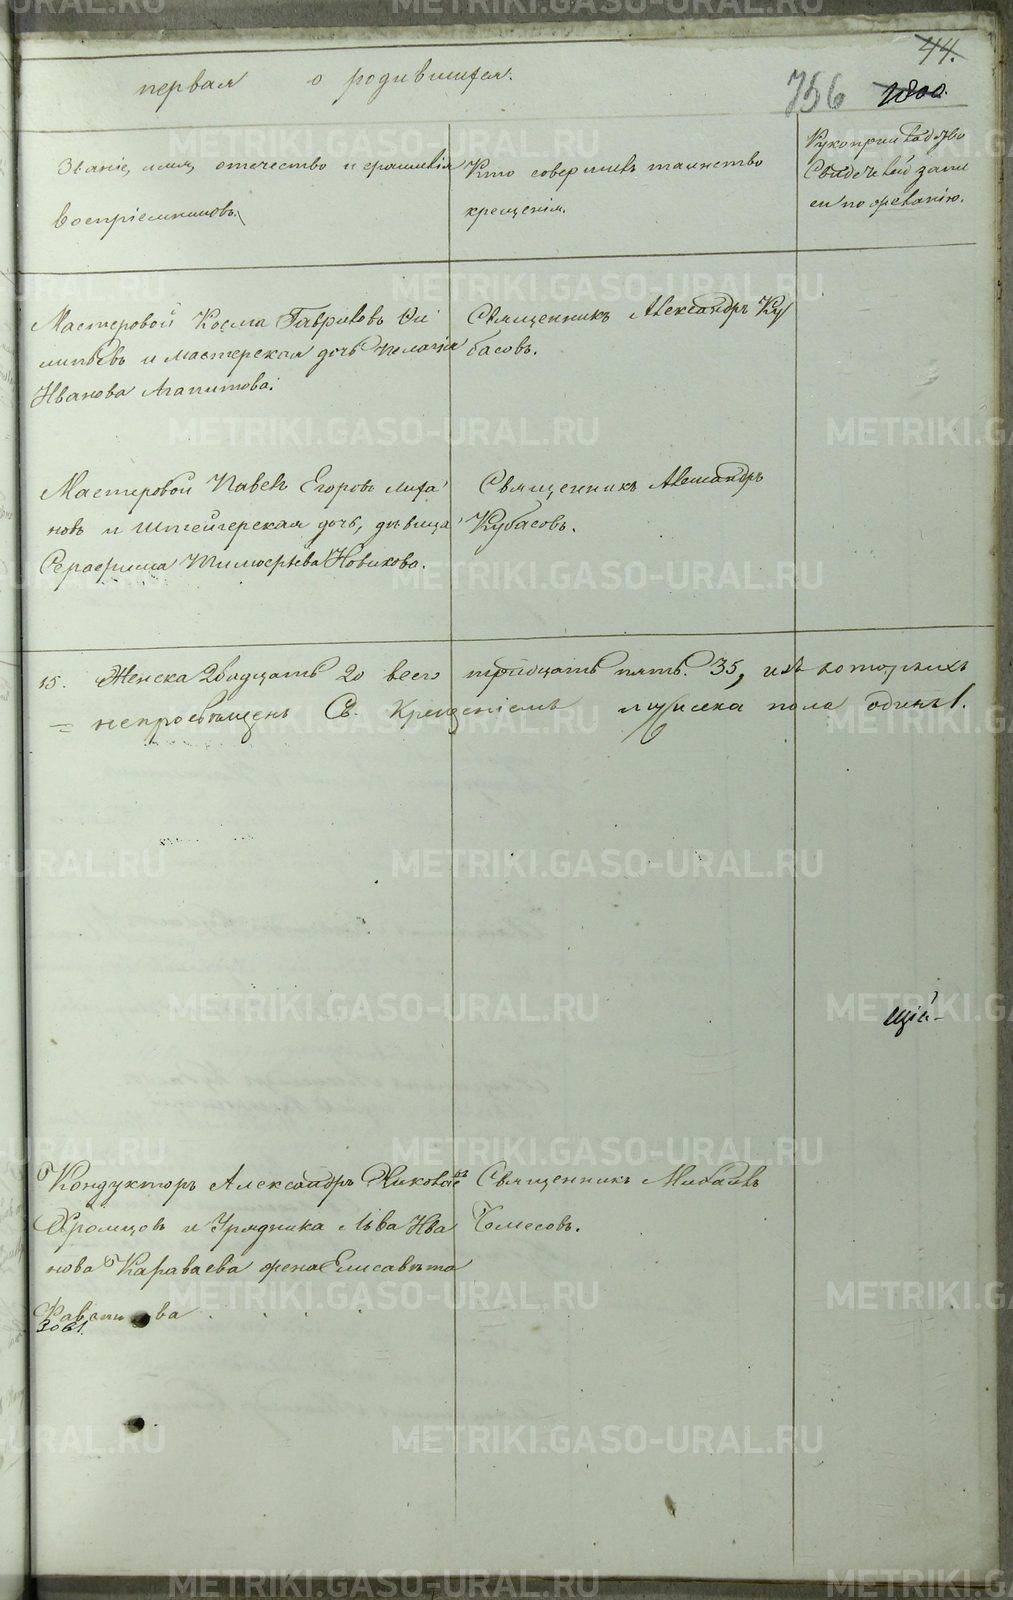 44.
первая о родившихся.
756 1800.
Званіе, имя, отечество и фамилія
воспріемниковъ.
Кто совершилъ таинство
крещенія.
Рукоприкладство
свидѣтелей записи
по желанію.
Мастеровой Косма Гавриловъ Фи
липьевъ и мастерская дочь Пелагія
Иванова Агапитова.
Священникъ Александръ Ку
басовъ.
Мастеровой Павелъ Егоровъ Лиха
новъ и штейгерская дочь, дѣвица
Серафима Тимофѣева Новикова.
Священникъ Александръ
Кубасовъ.
15. Женска двадцать 20 всего тридцать пять. 35, изъ которыхъ
= непросвѣщенъ Св. Крещеніемъ мужска пола одинъ 1.
щій
Кондукторъ Александръ Николаевъ
Хромцовъ и Урядника Льва Ива
нова Караваева жена Елисавета
Священникъ Михаилъ
3061.
METRIKI.GASO-URAL.RU